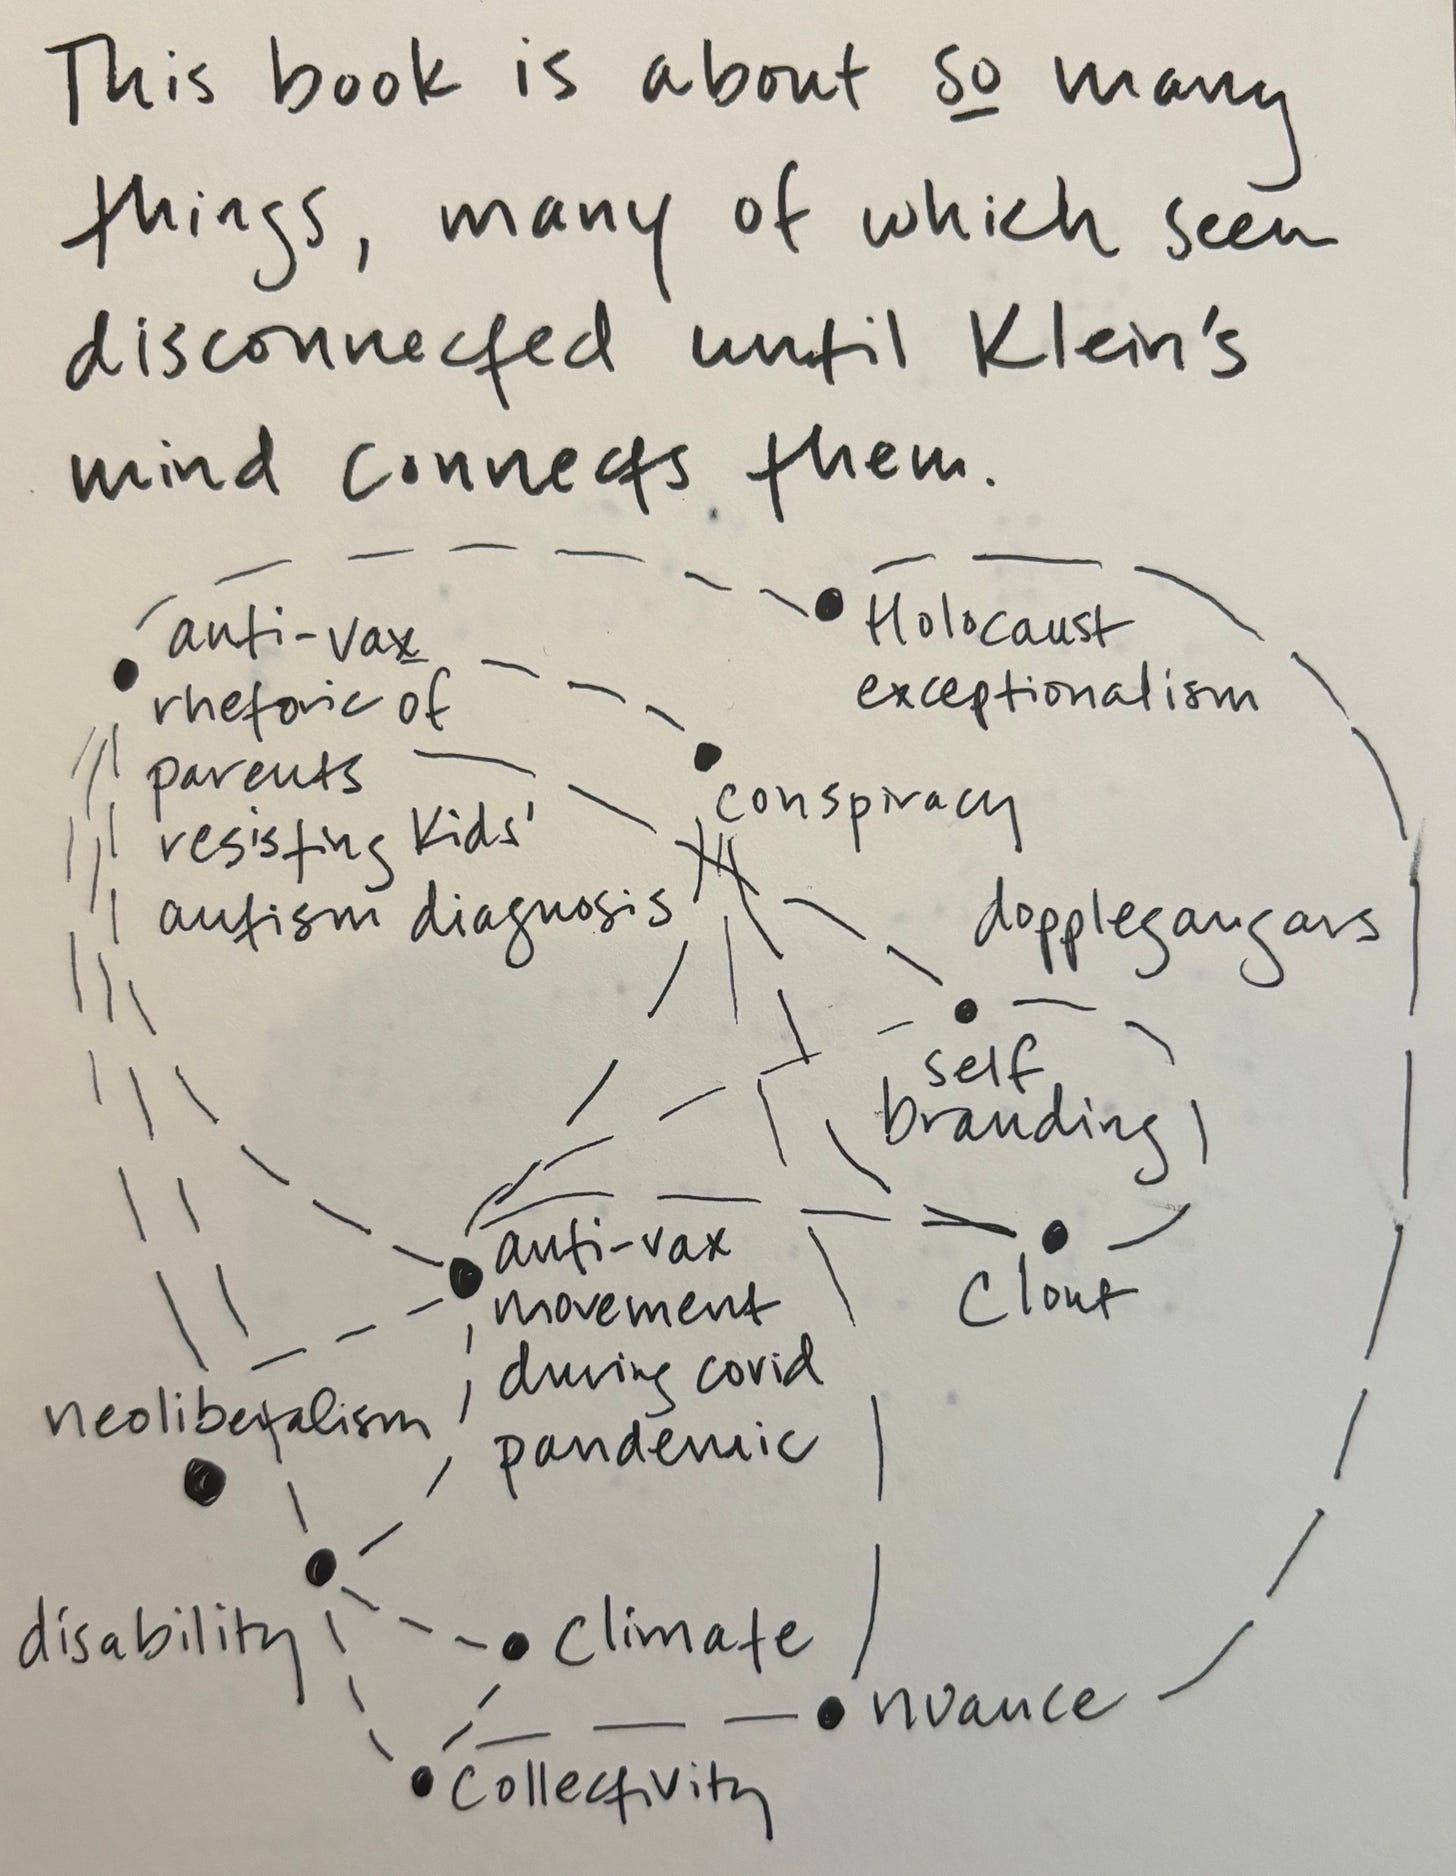 This book is about so many
things, many of which seem
disconnected until Klein's
mind connects them.
anti-vax
rhetoric of
parents
resisting kids'
autism diagnosis
Holocaust
exceptionalism
conspiracy
dopplegangars
self
branding
anti-vax
movement
during covid
pandemic
Clout
neoliberalism
disability
Climate
nuance
Collectivity